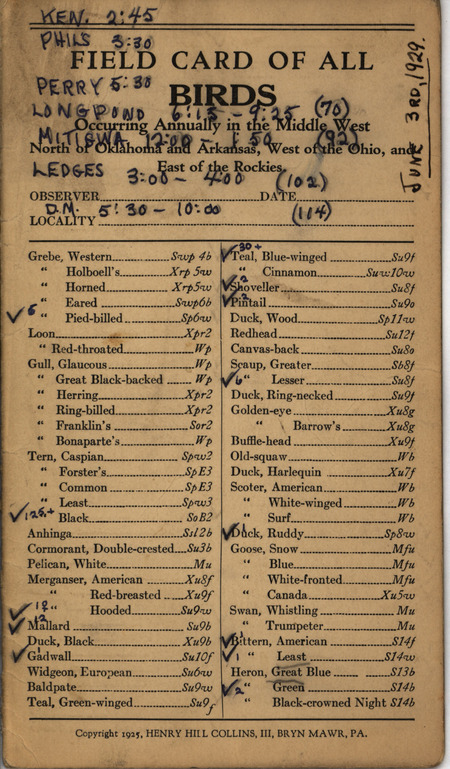 KEN. 2:45
PHILS 3:30
FIELD CARD OF ALL
PERRY 5:30
BIRDS
LONG POND 6:15 - 9:25 (70)
Occurring Annually in the Middle West
MITIGWA 12:00 - 1:50 (92)
North of Oklahoma and Arkansas, West of the Ohio, and
East of the Rockies
LEDGES 3:00 - 4:00 (102)
OBSERVER DATE
D.M. 5:30 - 10:00 (114)
LOCALITY
JUNE 3RD, 1929.
Grebe, Western Swp 4b
" Holboell's Xrp 5w
" Horned Xrp5w
" Eared Swp6b
✓ 6 " Pied-billed Sp6w
Loon Xpr2
" Red-throated Wp
Gull, Glaucous Wp
" Great Black-backed Wp
" Herring Xpr2
" Ring-billed Xpr2
" Franklin's Sor2
" Bonaparte's Wp
Tern, Caspian Spw2
" Forster's SpE3
" Common SpE3
" Least Spw3
✓ 125+ " Black SoB2
Anhinga Ss12b
Cormorant, Double-crested Su3b
Pelican, White Mu
Merganser, American Xu8f
" Red-breasted Xu9f
✓ " Hooded Su9w
✓ Mallard Su9b
Duck, Black Xu9b
✓ Gadwall Su10f
Widgeon, European Su6w
Baldpate Su9w
Teal, Green-winged Su9f
✓ 30+ Teal, Blue-winged Su9f
" Cinnamon Suw10w
✓ Shoveller Su8f
✓ Pintail Su9o
Duck, Wood Sp11w
Redhead Su12f
Canvas-back Su8o
Scaup, Greater Sb8f
✓ 6 " Lesser Su8f
Duck, Ring-necked Su9f
Golden-eye Xu8g
" Barrow's Xu8g
Buffle-head Xu9f
Old-squaw Wb
Duck, Harlequin Xu7f
Scoter, American Wb
" White-winged Wb
" Surf Wb
✓ Duck, Ruddy Sp8w
Goose, Snow Mfu
" Blue Mfu
" White-fronted Mfu
" Canada Xu5w
Swan, Whistling Mu
" Trumpeter Mu
✓ Bittern, American S14f
✓ 1 " Least S14w
Heron, Great Blue S13b
✓ 2 " Green S14b
" Black-crowned Night S14b
Copyright 1925, HENRY HILL COLLINS, III, BRYN MAWR, PA.